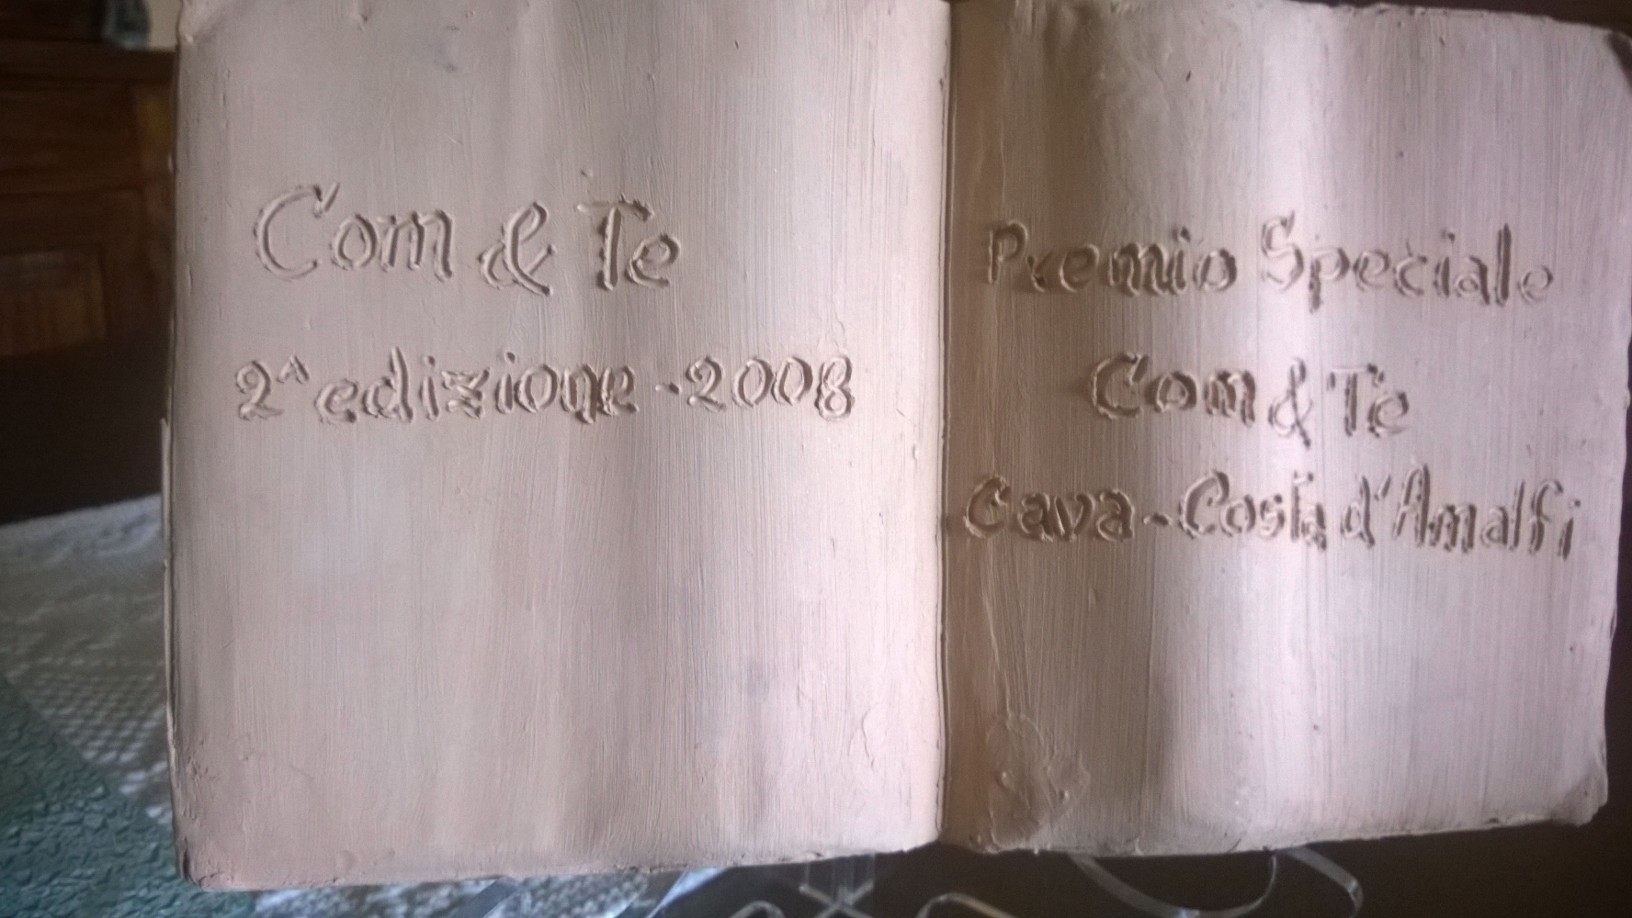 Com & Te
2ª edizione - 2008
Premio Speciale
Com & Te
Cava - Costa d'Amalfi